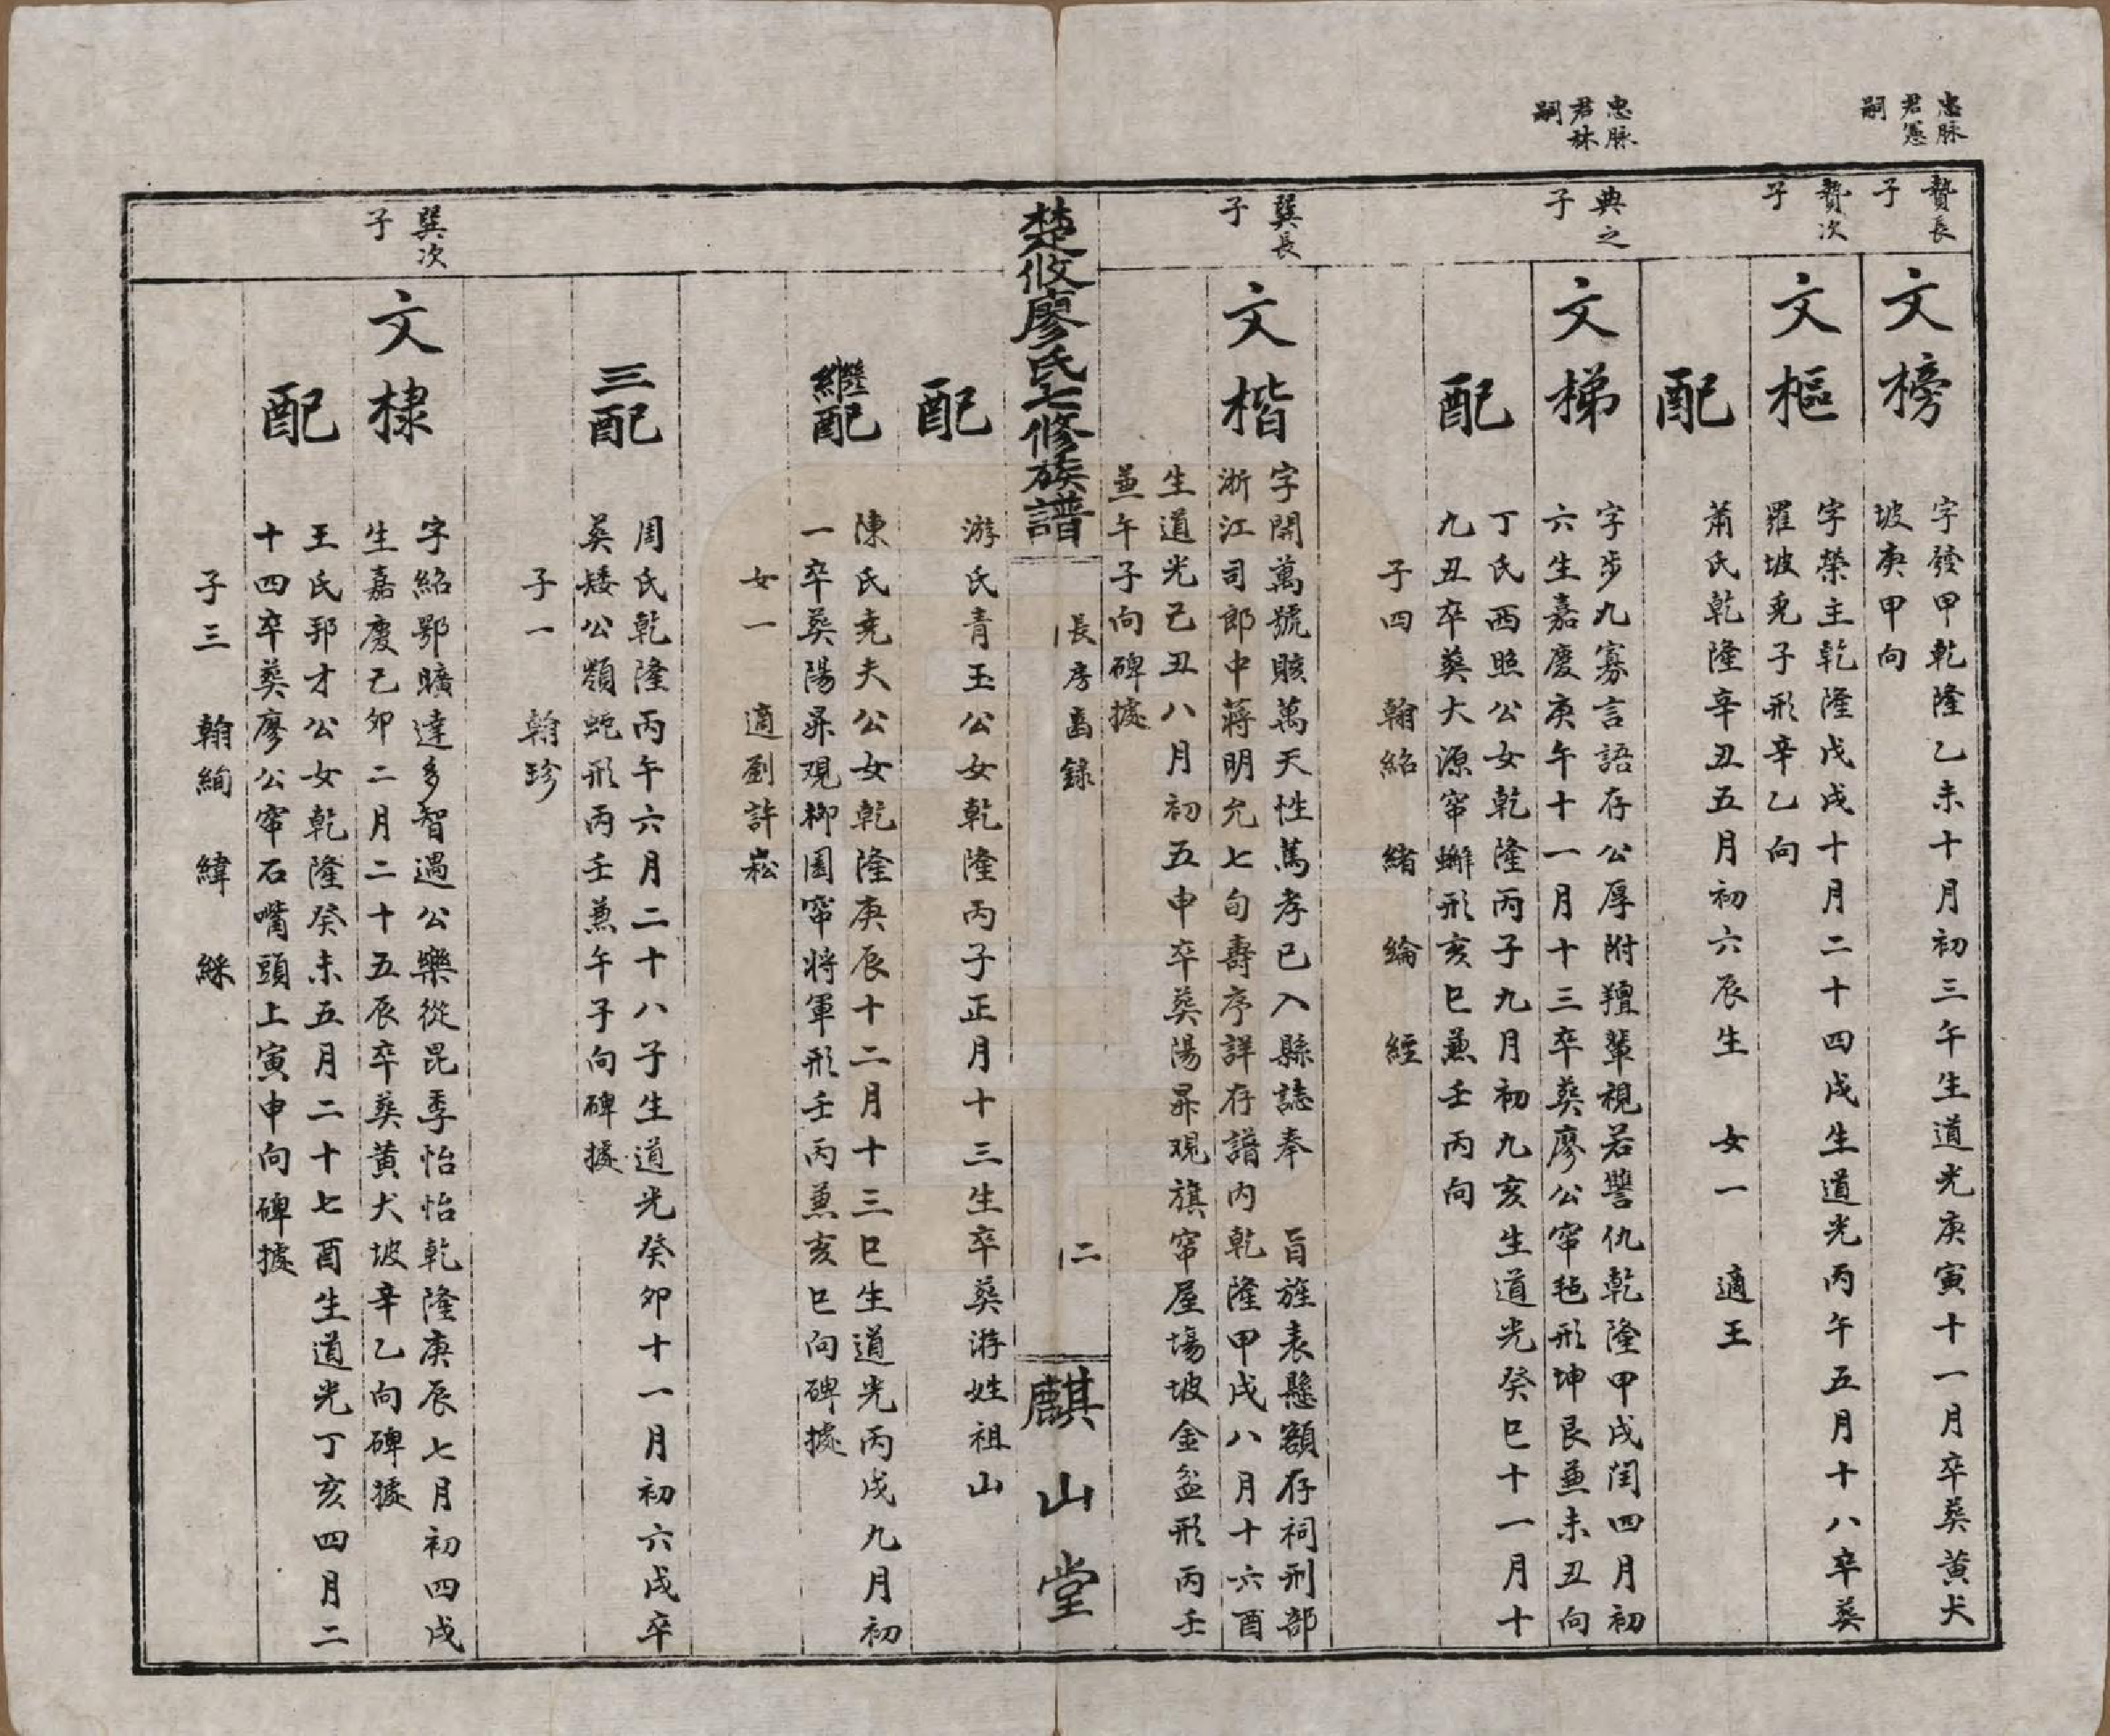 忠脉
君憑
嗣
贊長
子
文榜
字發甲乾隆乙未十月初三午生道光庚寅十一月卒葬黄犬
坡庚甲向
贊次
子
文樞
字榮主乾隆戊戌十月二十四戌生道光丙午五月十八卒葬
羅坡兎子形辛乙向
配
萧氏乾隆辛丑五月初六辰生 女一 適王
忠脉
君秣
嗣
典之
子
文梯
字步九寡言語存公厚附羶輩視若讐仇乾隆甲戌閏四月初
六生嘉慶庚午十一月十三卒葬廖公窜毡形坤艮兼未丑向
配
丁氏西照公女乾隆丙子九月初九亥生道光癸巳十一月十
九丑卒葬大源窜蠏形亥巳兼壬丙向
子四 翰紹 緒 綸 經
巽長
子
文楷
字開萬號賅萬天性篤孝已入縣誌奉 旨旌表懸額存祠刑部
浙江司郎中蔣明允七旬壽序詳存譜内乾隆甲戌八月十六酉
生道光己丑八月初五申卒葬陽昇观旗窜屋場坡金盆形丙壬
兼午子向碑據
楚攸廖氏七修族譜
長房齒錄
二
麒山堂
配
游氏青玉公女乾隆丙子正月十三生卒葬游姓祖山
繼配
陳氏堯夫公女乾隆庚辰十二月十三巳生道光丙戌九月初
一卒葬陽昇观柳園窜将軍形壬丙兼亥巳向碑據
女一 適劉許崧
三配
周氏乾隆丙午六月二十八子生道光癸卯十一月初六戌卒
葬矮公顉蛇形丙壬兼午子向碑據
子一 翰珍
巽次
子
文棣
字紹鄂曠達多智過公樂從昆季怡怡乾隆庚辰七月初四戌
生嘉慶己卯二月二十五辰卒葬黄犬坡辛乙向碑據
配
王氏邦才公女乾隆癸未五月二十七酉生道光丁亥四月二
十四卒葬廖公窜石嘴頭上寅申向碑據
子三 翰絢 緯 綵